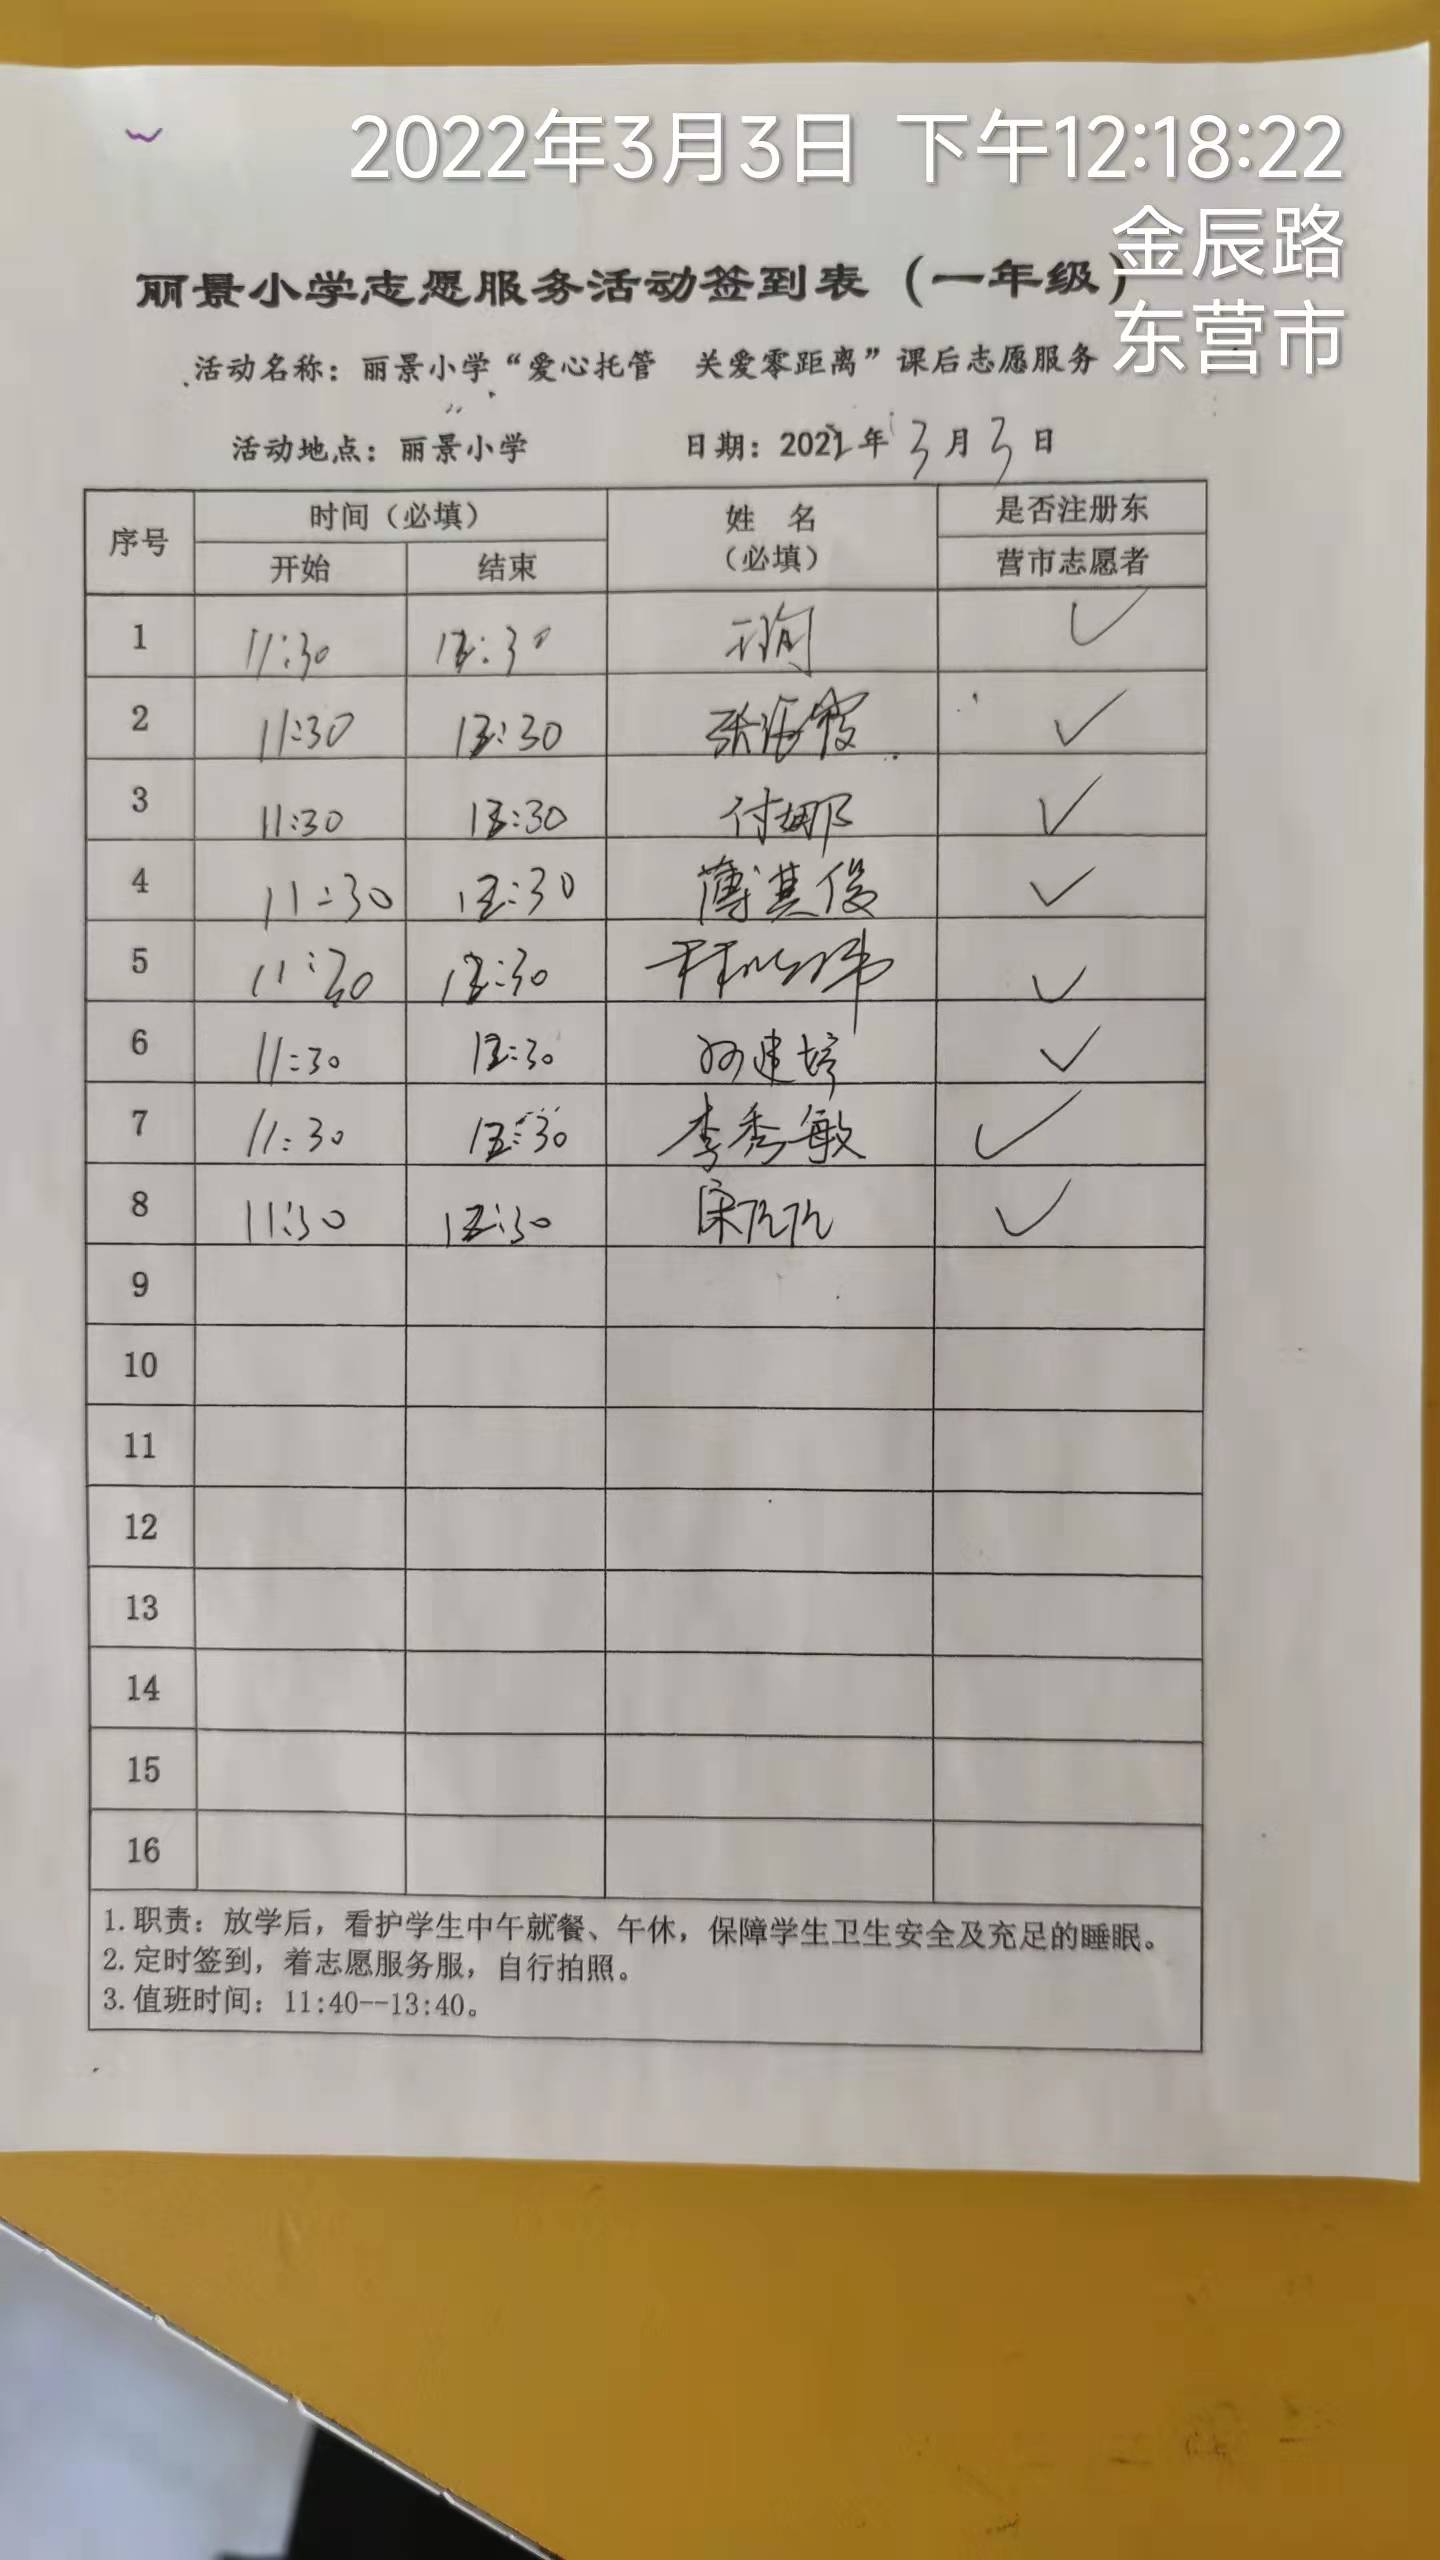 2022年3月3日 下午12:18:22
金辰路
东营市
丽景小学志愿服务活动签到表（一年级）
活动名称：丽景小学“爱心托管 关爱零距离”课后志愿服务
活动地点：丽景小学 日期：2022年3月3日
序号 时间（必填） 姓 名（必填） 是否注册东营市志愿者
开始 结束
1 11:30 :30 ✓
2 11:30 13:30 张海霞 ✓
3 11:30 13:30 付娜 ✓
4 11:30 :30 薄其俊 ✓
5 11:30 :30 ✓
6 11:30 :30 孙建婷 ✓
7 11:30 :30 李秀敏 ✓
8 11:30 :30 宋 ✓
9
10
11
12
13
14
15
16
1.职责：放学后，看护学生中午就餐、午休，保障学生卫生安全及充足的睡眠。
2.定时签到，着志愿服务服，自行拍照。
3.值班时间：11:40--13:40。